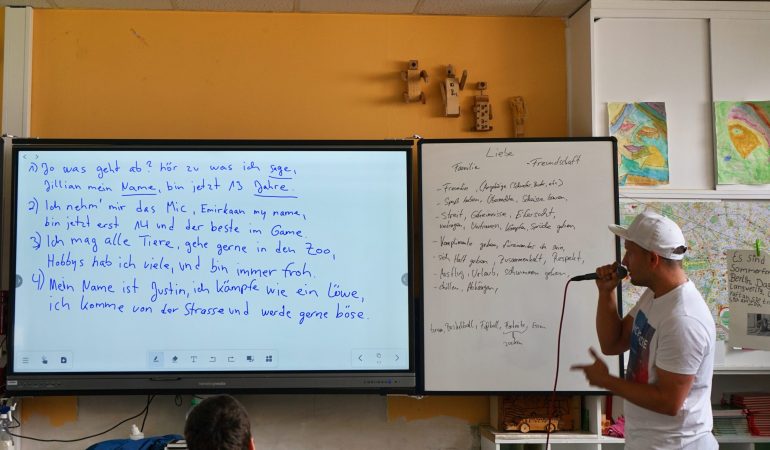 1) Jo was geht ab? hör zu was ich sage,
Jillian mein Name, bin jetzt 13 Jahre.
2) Ich nehm' mir das Mic, Emirkaan my name,
bin jetzt erst 14 und der beste im Game.
3) Ich mag alle Tiere, gehe gerne in den Zoo,
Hobbys hab ich viele, und bin immer froh.
4) Mein Name ist Justin, ich kämpfe wie ein Löwe,
ich komme von der Strasse und werde gerne böse.
Liebe
Familie - Freundschaft
- Freunde
- Spaß haben
- Streit, Geheimnisse, Eifersucht,
- Komplimente geben, füreinander da sein,
- sich Halt geben, Zusammenhalt, Respekt,
- Ausflug, Urlaub, schwimmen gehen
- chillen, Abhängen,
Basketball, Fußball,
Es sind
Sommerfer
Berlin. Das
Langweilig